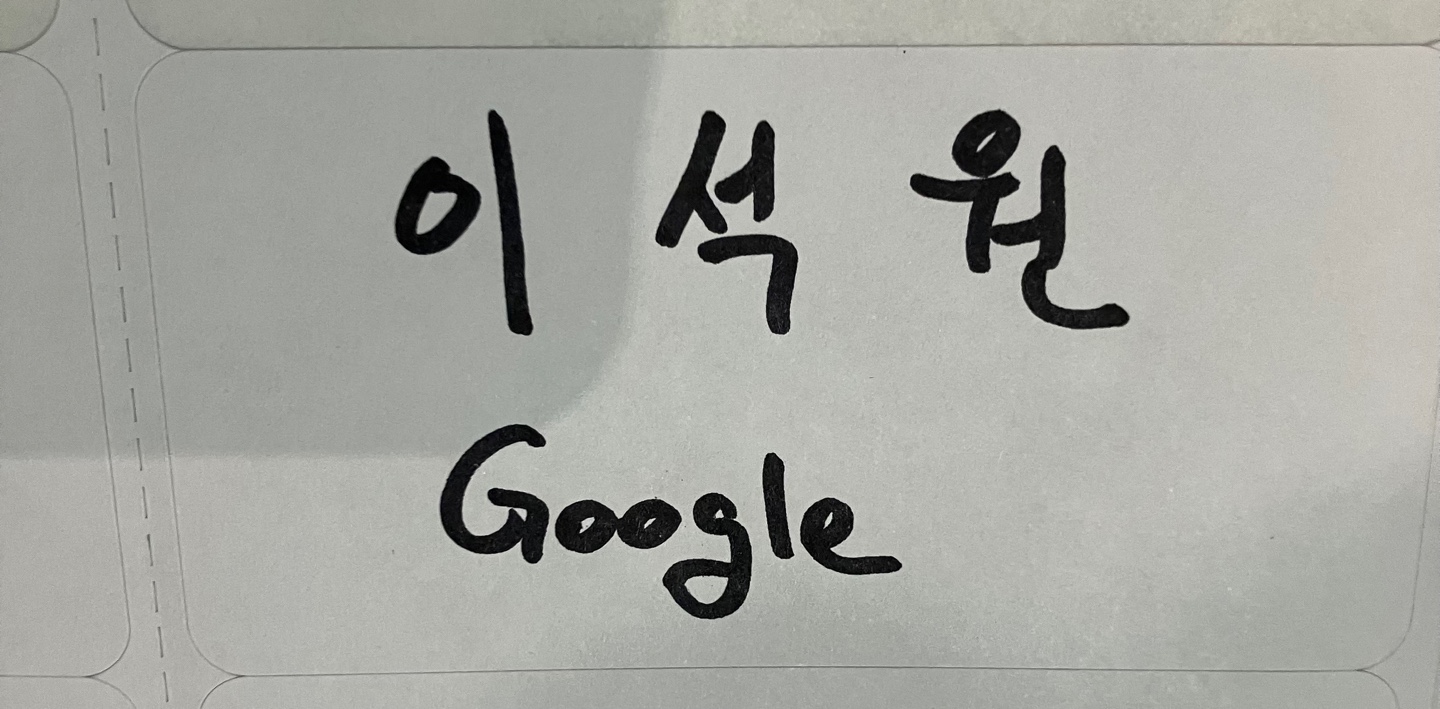 이 석 원
Google